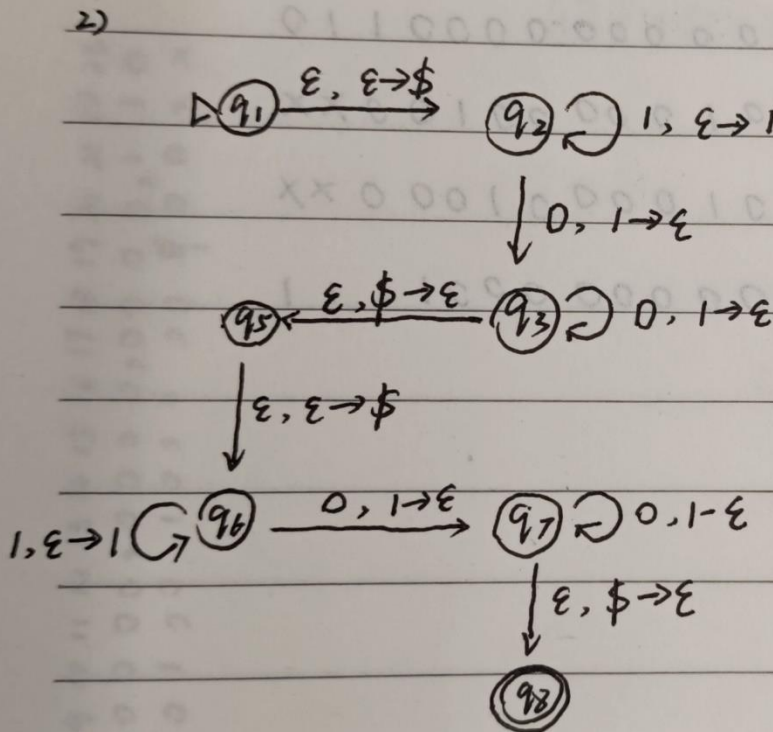 2)
q1 ε, ε→$ q2 1, ε→1
0, 1→ε
q5 ε, $→ε q3 0, 1→ε
ε, ε→$
1, ε→1 q6 0, 1→ε q7 0, 1-ε
ε, $→ε
q8